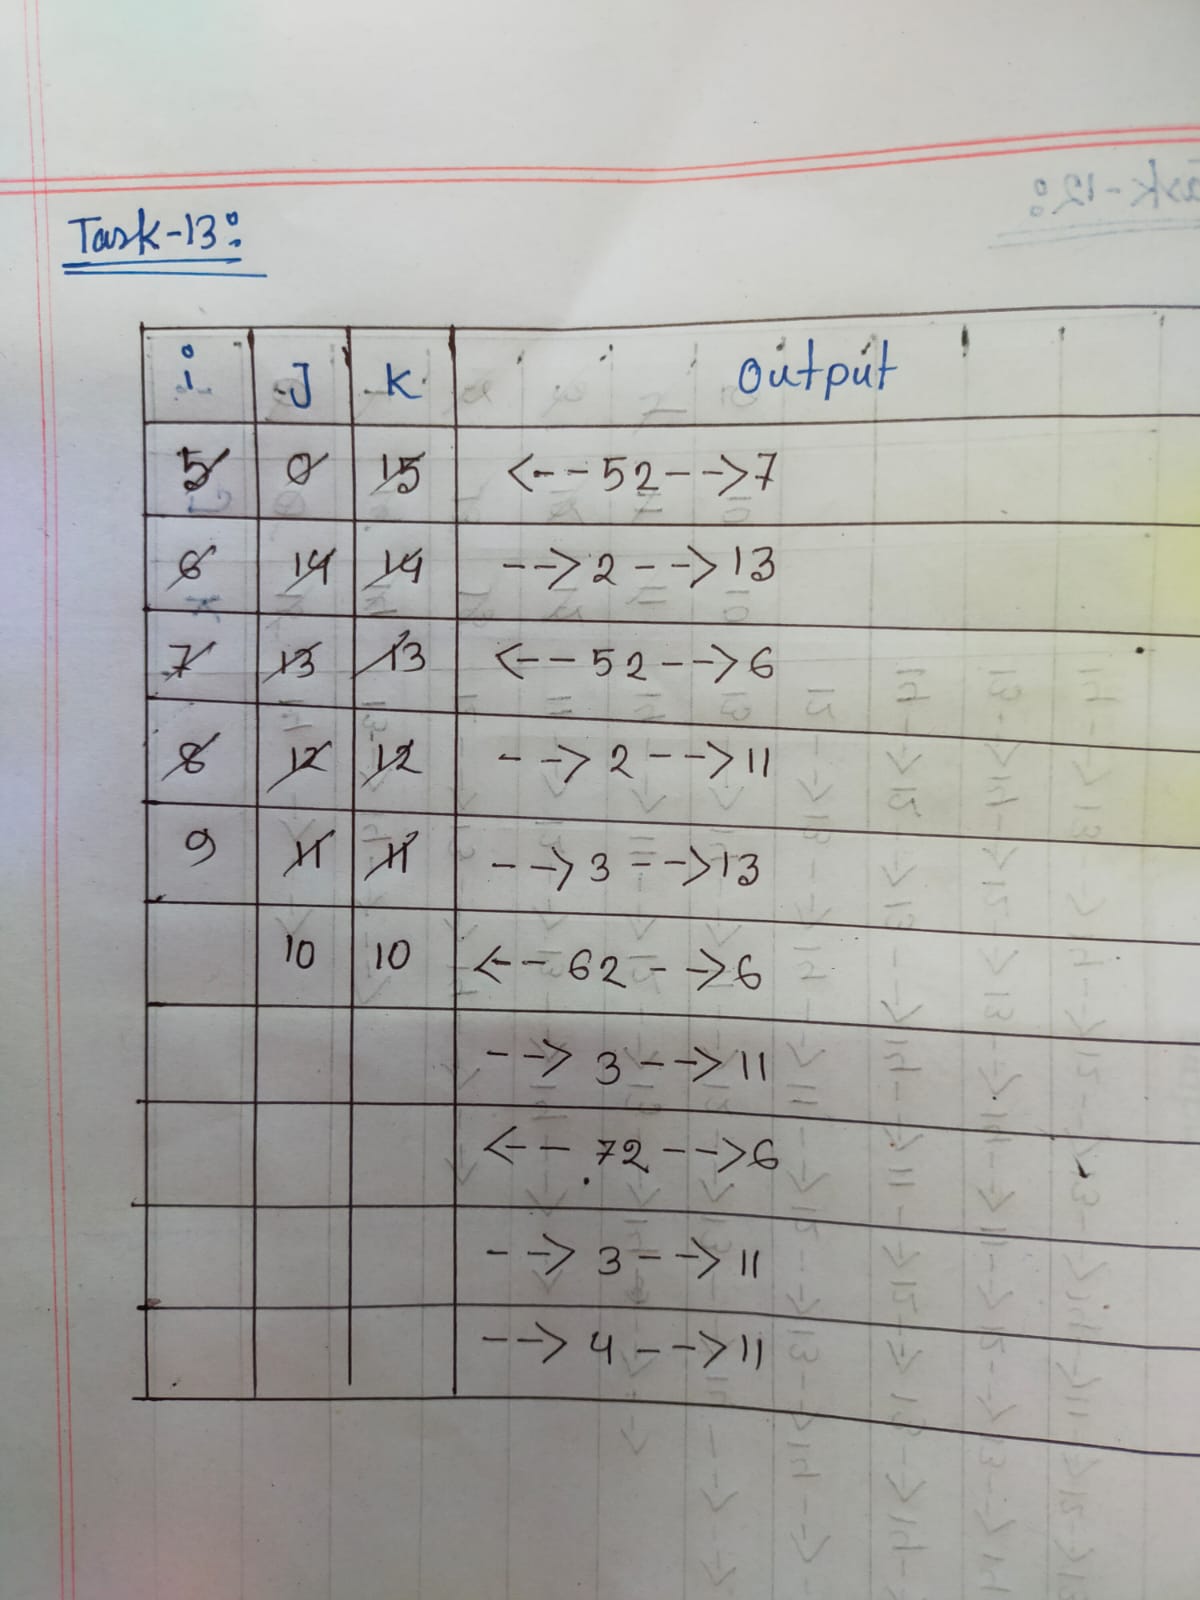 Task-13:
i J K Output
5 0 15 <--52-->7
6 14 14 -->2-->13
7 13 13 <--52-->6
8 12 12 -->2-->11
9 11 11 -->3-->13
10 10 <--62-->6
-->3-->11
<--72-->6
-->3-->11
-->4-->11